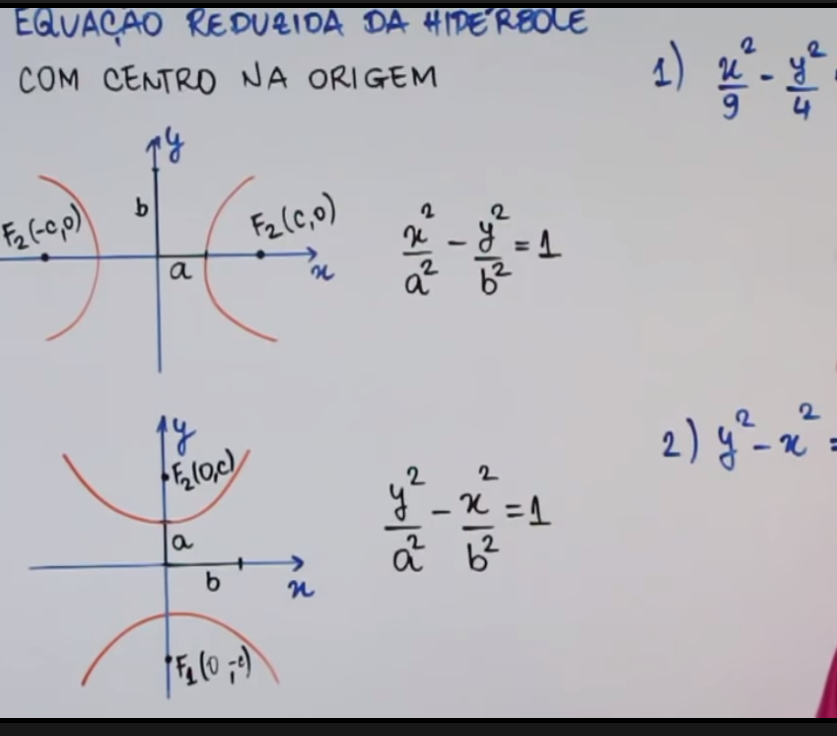 EQUAÇÃO REDUZIDA DA HIPÉRBOLE
COM CENTRO NA ORIGEM
y
b
F₂(-c,0)
F₂(c,0)
a
x
x²/a² - y²/b² = 1
y
F₂(0,c)
a
b
x
F₁(0,-c)
y²/a² - x²/b² = 1
1) x²/9 - y²/4
2) y² - x² =